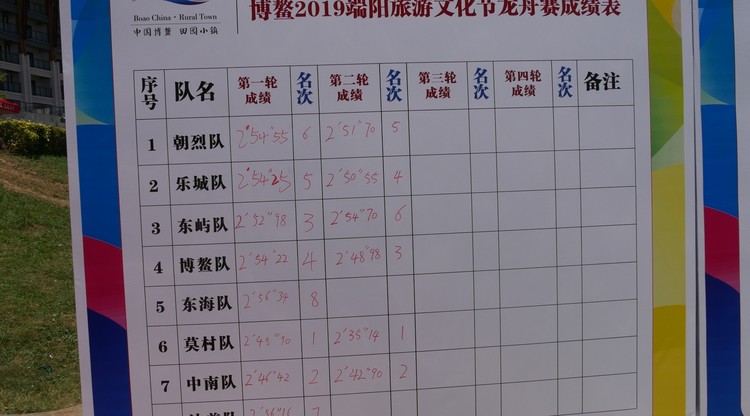 Boao China · Rural Town
中国博鳌 田园小镇
博鳌2019端阳旅游文化节龙舟赛成绩表
序号 队名 第一轮成绩 名次 第二轮成绩 名次 第三轮成绩 名次 第四轮成绩 名次 备注
1 朝烈队 2'54"55 6 2'51"70 5
2 乐城队 2'54"25 5 2'50"55 4
3 东屿队 2'52"98 3 2'54"70 6
4 博鳌队 2'54"22 4 2'48"98 3
5 东海队 2'56"34 8
6 莫村队 1 2'35"14 1
7 中南队 2'46"42 2 2'42"90 2